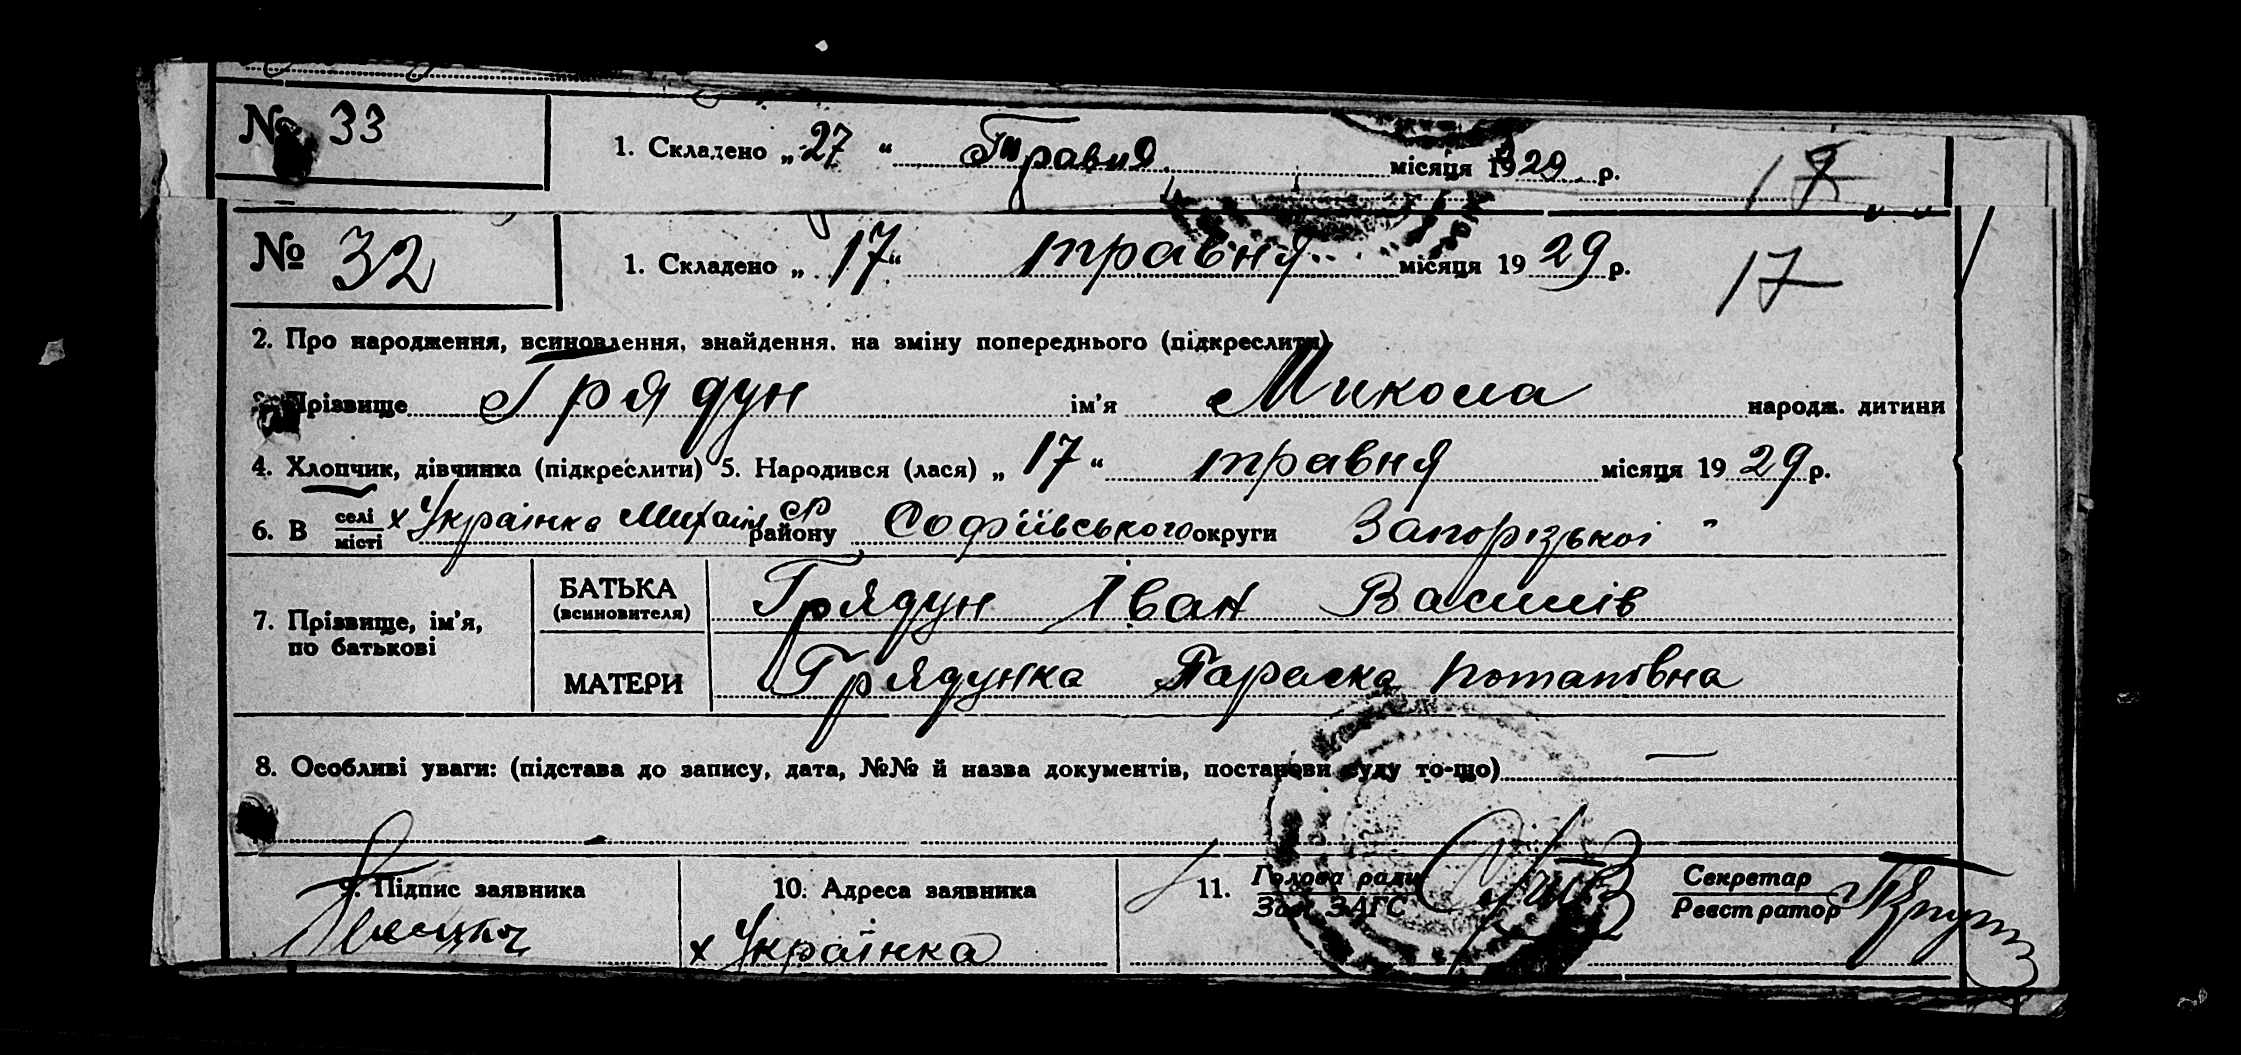 № 33
1. Складено „27“ Травня місяця 1929 р. 17
№ 32
1. Складено „17“ травня місяця 1929 р. 17
2. Про народження, всиновлення, знайдення, на зміну попереднього (підкреслити)
Прізвище Грядун ім'я Микола народж. дитини
4. Хлопчик, дівчинка (підкреслити) 5. Народився (лася) „17“ травня місяця 1929 р.
6. В селі місті х Українка Михайл СР району Софіївського округи Запорізької
7. Прізвище, ім'я, по батькові
БАТЬКА (всиновителя) Грядун Іван Василів
МАТЕРИ Грядунка Параска Потапівна
8. Особливі уваги: (підстава до запису, дата, №№ й назва документів, постанови суду то-що) —
9. Підпис заявника
10. Адреса заявника
х Українка
11. Голова ради
Зав. ЗАГС
Секретар
Реєстратор